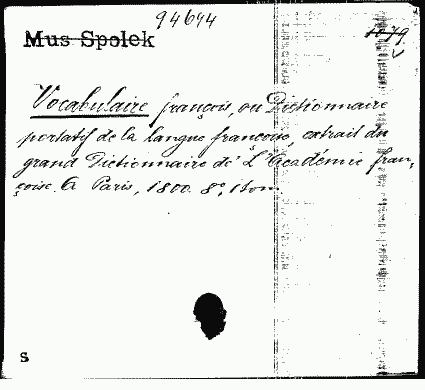 94644
Mus Spolek
1079
Vocabulaire français, ou Dictionnaire
portatif de la langue françoise, extrait du
grand Dictionnaire de L'Académie fran-
çoise. A Paris, 1800. 8°, 1 tom.
S